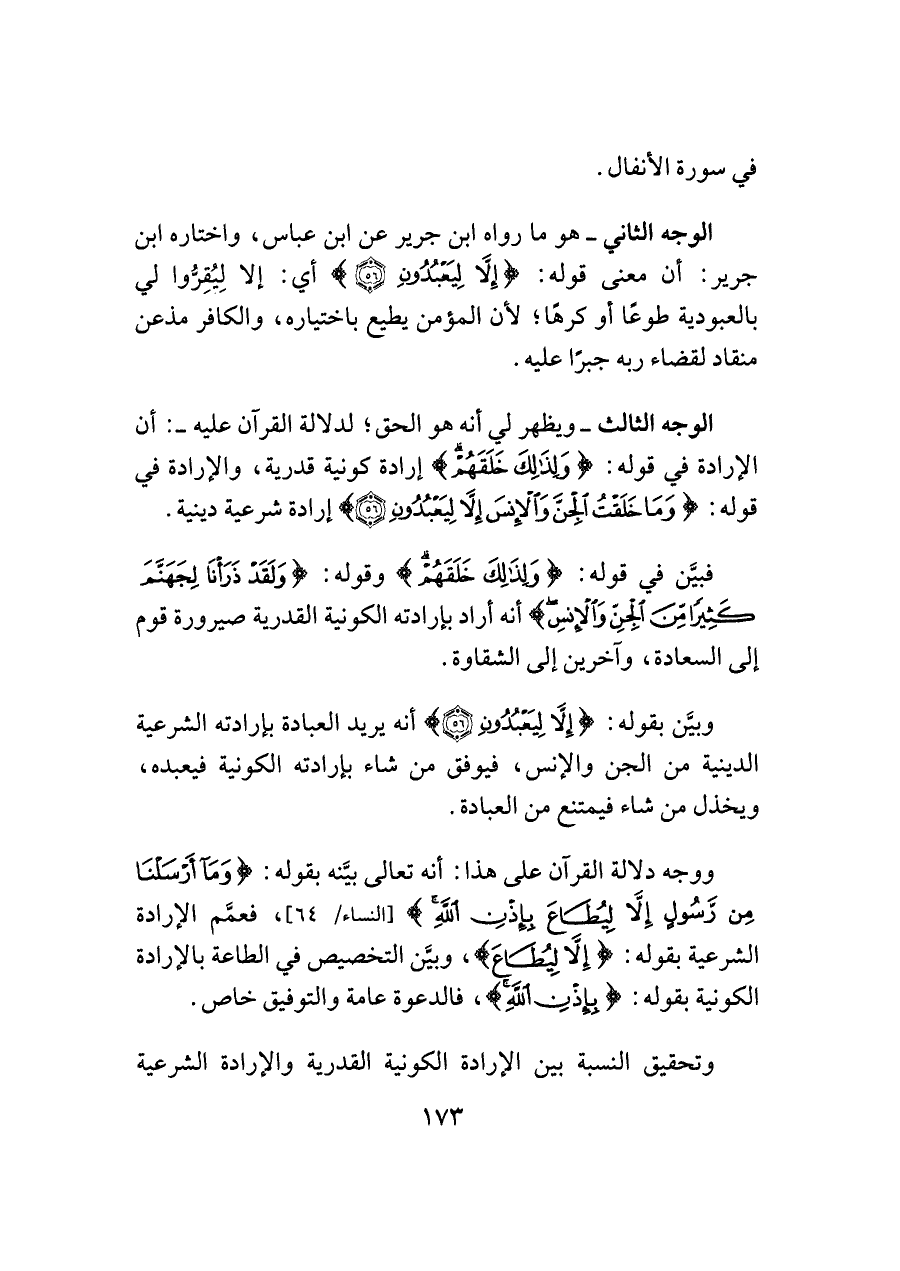 في سورة الأنفال.
الوجه الثاني ـ هو ما رواه ابن جرير عن ابن عباس، واختاره ابن
جرير: أن معنى قوله: ﴿إِلَّا لِيَعْبُدُونِ ٥٦﴾ أي: إلا لِيُقِرُّوا لي
بالعبودية طوعًا أو كرهًا؛ لأن المؤمن يطيع باختياره، والكافر مذعن
منقاد لقضاء ربه جبرًا عليه.
الوجه الثالث ـ ويظهر لي أنه هو الحق؛ لدلالة القرآن عليه ـ: أن
الإرادة في قوله: ﴿وَلِذَٰلِكَ خَلَقَهُمْۗ﴾ إرادة كونية قدرية، والإرادة في
قوله: ﴿وَمَا خَلَقْتُ ٱلْجِنَّ وَٱلْإِنسَ إِلَّا لِيَعْبُدُونِ ٥٦﴾ إرادة شرعية دينية.
فبيَّن في قوله: ﴿وَلِذَٰلِكَ خَلَقَهُمْۗ﴾ وقوله: ﴿وَلَقَدْ ذَرَأْنَا لِجَهَنَّمَ
كَثِيرًا مِّنَ ٱلْجِنِّ وَٱلْإِنسِۖ﴾ أنه أراد بإرادته الكونية القدرية صيرورة قوم
إلى السعادة، وآخرين إلى الشقاوة.
وبيَّن بقوله: ﴿إِلَّا لِيَعْبُدُونِ ٥٦﴾ أنه يريد العبادة بإرادته الشرعية
الدينية من الجن والإنس، فيوفق من شاء بإرادته الكونية فيعبده،
ويخذل من شاء فيمتنع من العبادة.
ووجه دلالة القرآن على هذا: أنه تعالى بيَّنه بقوله: ﴿وَمَآ أَرْسَلْنَا
مِن رَّسُولٍ إِلَّا لِيُطَاعَ بِإِذْنِ ٱللَّهِۚ﴾ [النساء/ ٦٤]، فعمَّم الإرادة
الشرعية بقوله: ﴿إِلَّا لِيُطَاعَ﴾، وبيَّن التخصيص في الطاعة بالإرادة
الكونية بقوله: ﴿بِإِذْنِ ٱللَّهِۚ﴾، فالدعوة عامة والتوفيق خاص.
وتحقيق النسبة بين الإرادة الكونية القدرية والإرادة الشرعية
١٧٣